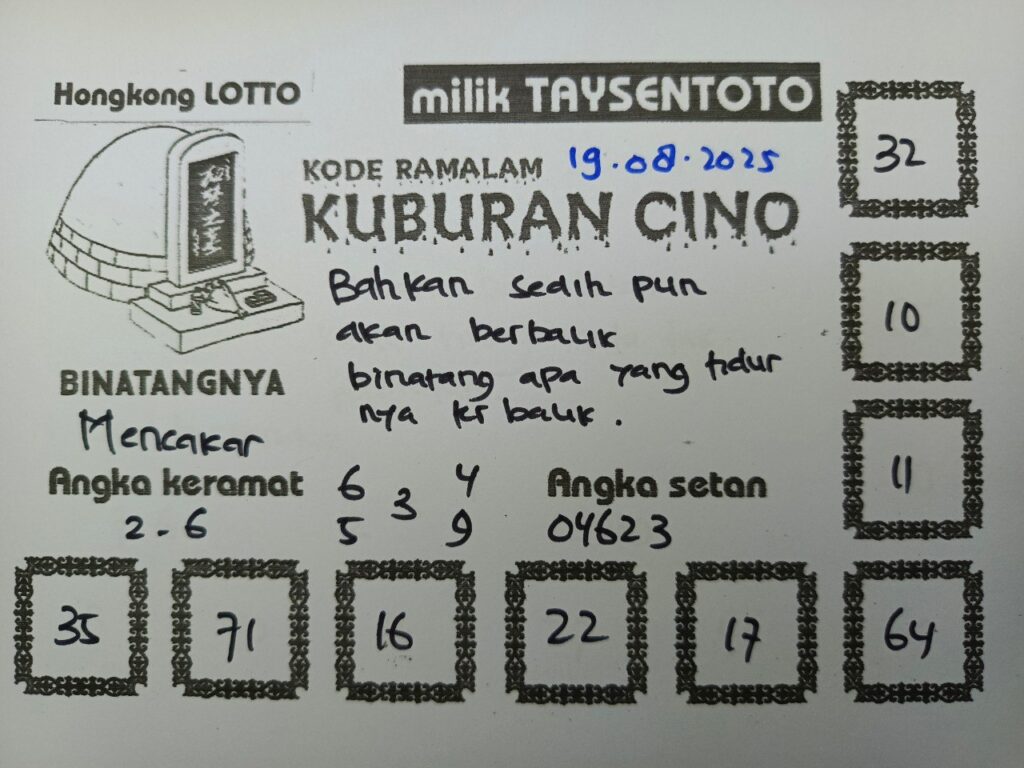 Hongkong LOTTO
milik TAYSENTOTO
KODE RAMALAM 19.08.2025
KUBURAN CINO
Bahkan sedih pun
akan berbalik
binatang apa yang tidur
nya kr balik.
BINATANGNYA
Mencakar
Angka keramat
2-6
6 4
3
5 9
Angka setan
04623
32
10
11
35 71 16 22 17 64